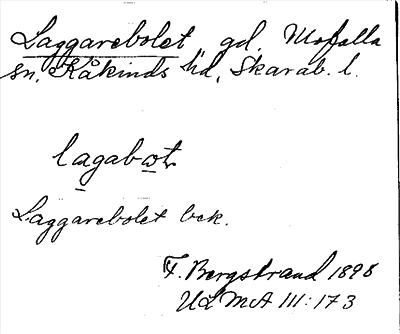 Laggarebolet, gd. Mofalla
sn, Kåkinds hd, Skarab. l.
lagabωt
Laggarebolet bek.
F. Bergstrand 1898
ULMA III: 173